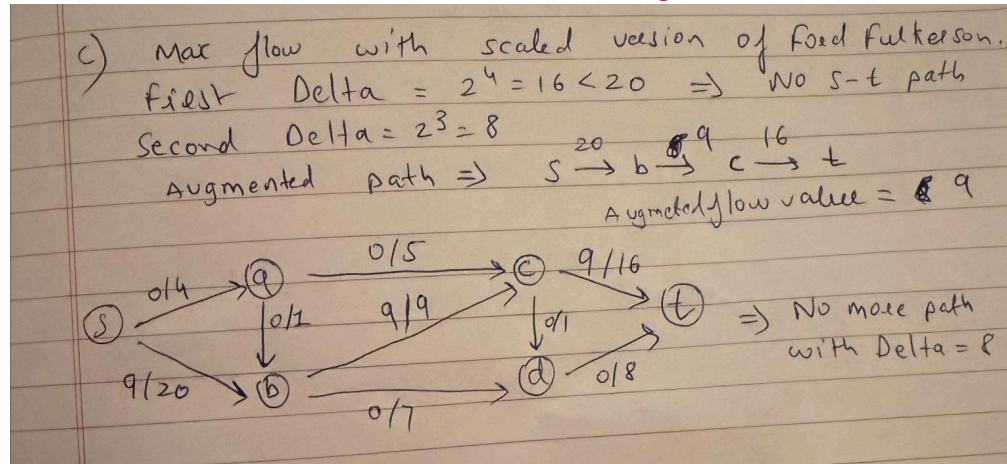 c) Max flow with scaled version of Ford Fulkerson.
First Delta = 2^4 = 16 < 20 => No s-t path
Second Delta = 2^3 = 8
Augmented path => s 20→ b 9→ c 16→ t
Augmeted flow value = 9
0/5
0/4 a c 9/16
s 0/1 9/9 0/1 t => No more path
with Delta = 8
9/20 b d 0/8
0/7